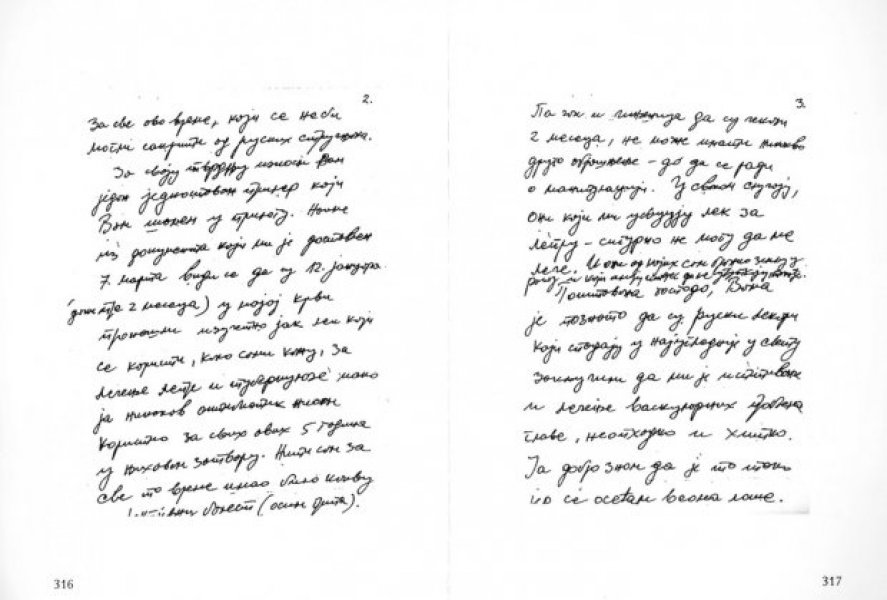 2.
За све ово време, који се не би
могли сакрити од руских стручњака.
За своју тврдњу износим Вам
један једноставан пример који
Вам шаљем у прилогу. Наиме
из документа који ми је достављен
7. марта види се да су 12. јануара
(дакле пре 2 месеца) у мојој крви
пронашли изузетно јак лек који
се користи, како сами кажу, за
лечење лепре и туберкулозе иако
ја никакав антибиотик нисам
користио за свих ових 5 година
у њиховом затвору. Нити сам за
све то време имао било какву
болест (осим грипа).
316
3.
Па чак и чињеница да су чекали
2 месеца, не може имати никакво
друго објашњење - до да се ради
о манипулацији. У сваком случају,
они који ми уваљују лек за
лепру - сигурно не могу да ме
лече. И они од којих сам бранио земљу у
рату и који имају интерес да ме ућуткају
Поштована господо, Вама
је познато да су руски лекари
који спадају у најугледније у свету
закључили да ми је испитивање
и лечење васкуларних проблема
главе, неопходно и хитно.
Ја добро знам да је то тако
јер се осећам веома лоше.
317